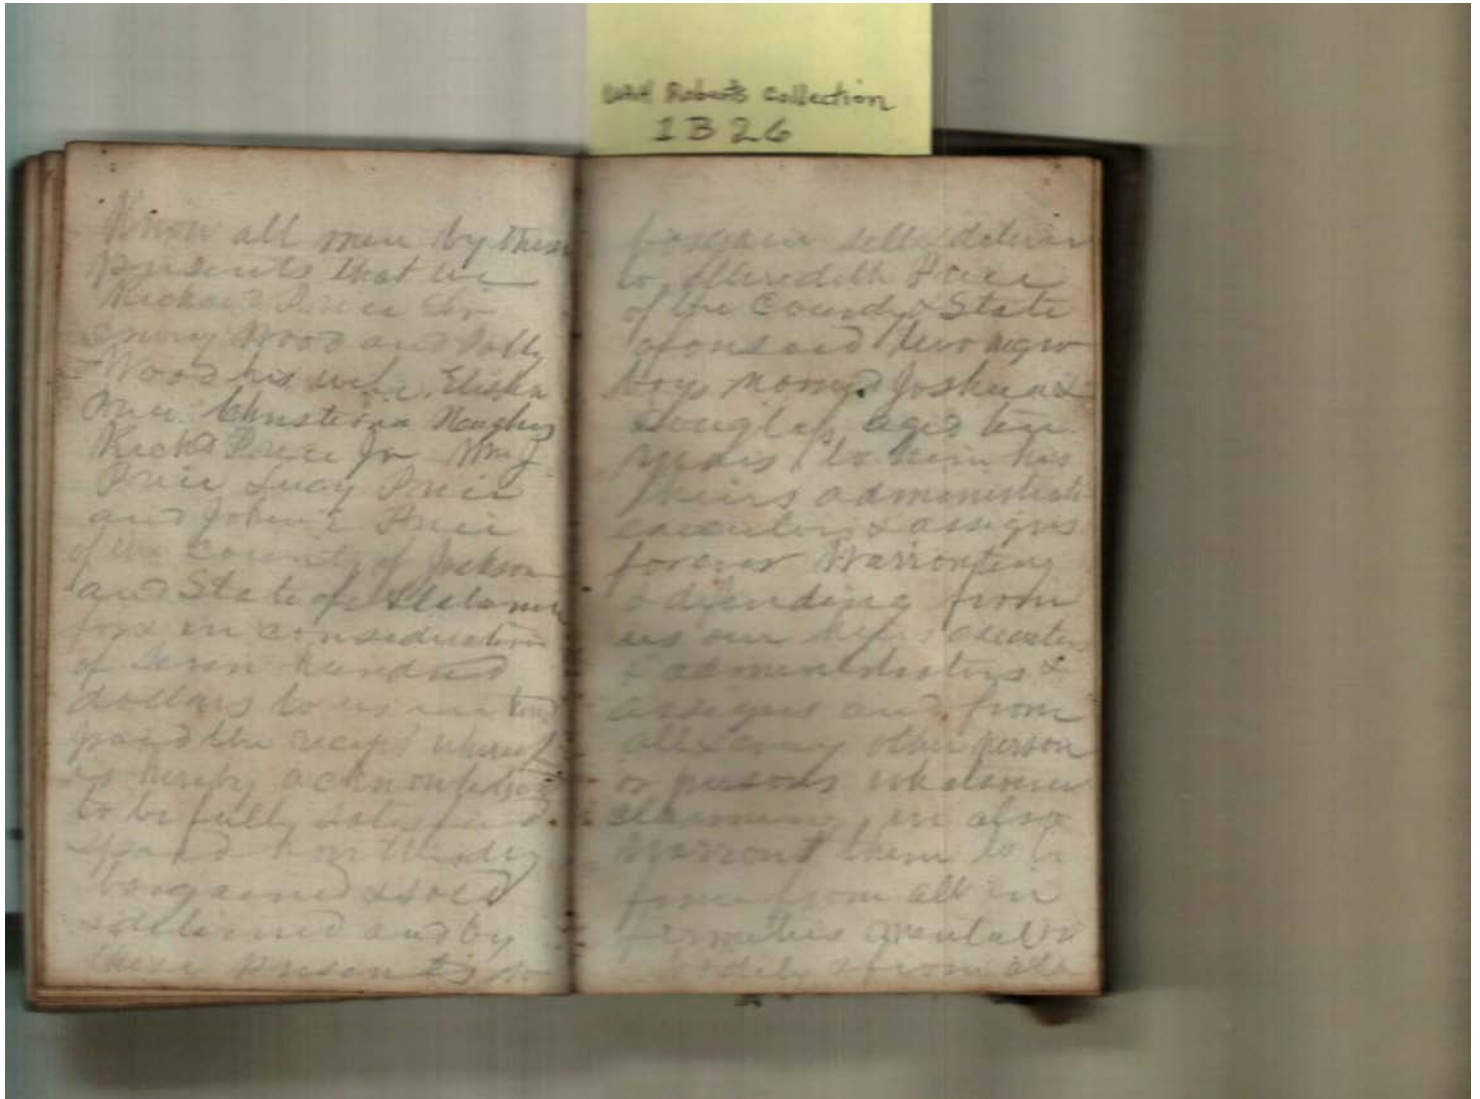 UAH Roberts Collection
1326
Know all men by these
presents that we
Richard Price Snr
Emory Wood and Polly
Wood his wife, Elisha
Price Christiana Hughes
Richd Price Jr Wm J.
Price Lucy Price
and John E Price
of the County of Jackson
and State of Alabama
for & in consideration
of seven hundred
dollars to us in hand
paid the receipt whereof
is hereby acknowledged
to be fully satisfied
& paid have this day
bargained & sold
& delivered and by
these presents do
bargain sell & deliver
to Meredith Price
of the County & State
aforesaid two negro
boys namyd Joshua &
Douglas, aged ten
years to him his
heirs administrat
executors & assigns
forever Warranting
& defending from
us our heirs executors
& administrators &
assigns and from
all & every other person
or persons whatever
claiming, we also
Warrant them to be
from all in
firmities mental or
bodily & from all